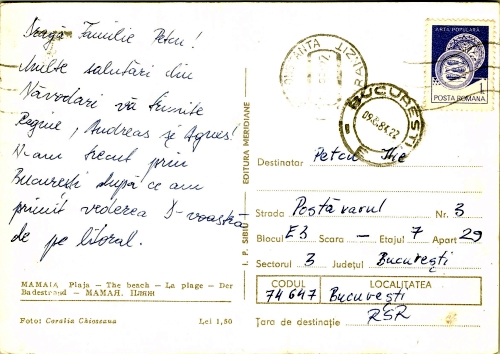 Dragă Familie Petcu!
Multe salutări din
Năvodari vă trimite
Regine, Andreas și Agnes!
N-am trecut prin
București după ce am
primit vederea D-voastră
de pe litoral.
MAMAIA Plaja — The beach — La plage — Der
Badestrand — МАМАЯ. Пляж
Foto: Coralia Chiossanu
Lei 1,50
I. P. SIBIU
EDITURA MERIDIANE
CONSTANȚA
BUCUREȘTI
09.8.84.22
ARTA POPULARĂ
1L
POSTA ROMANA
Destinatar Petcu Ilie
Strada Postăvarul Nr. 3
Blocul E3 Scara — Etajul 7 Apart 29
Sectorul 3 Județul București
CODUL LOCALITATEA
74647 București
Țara de destinație RSR